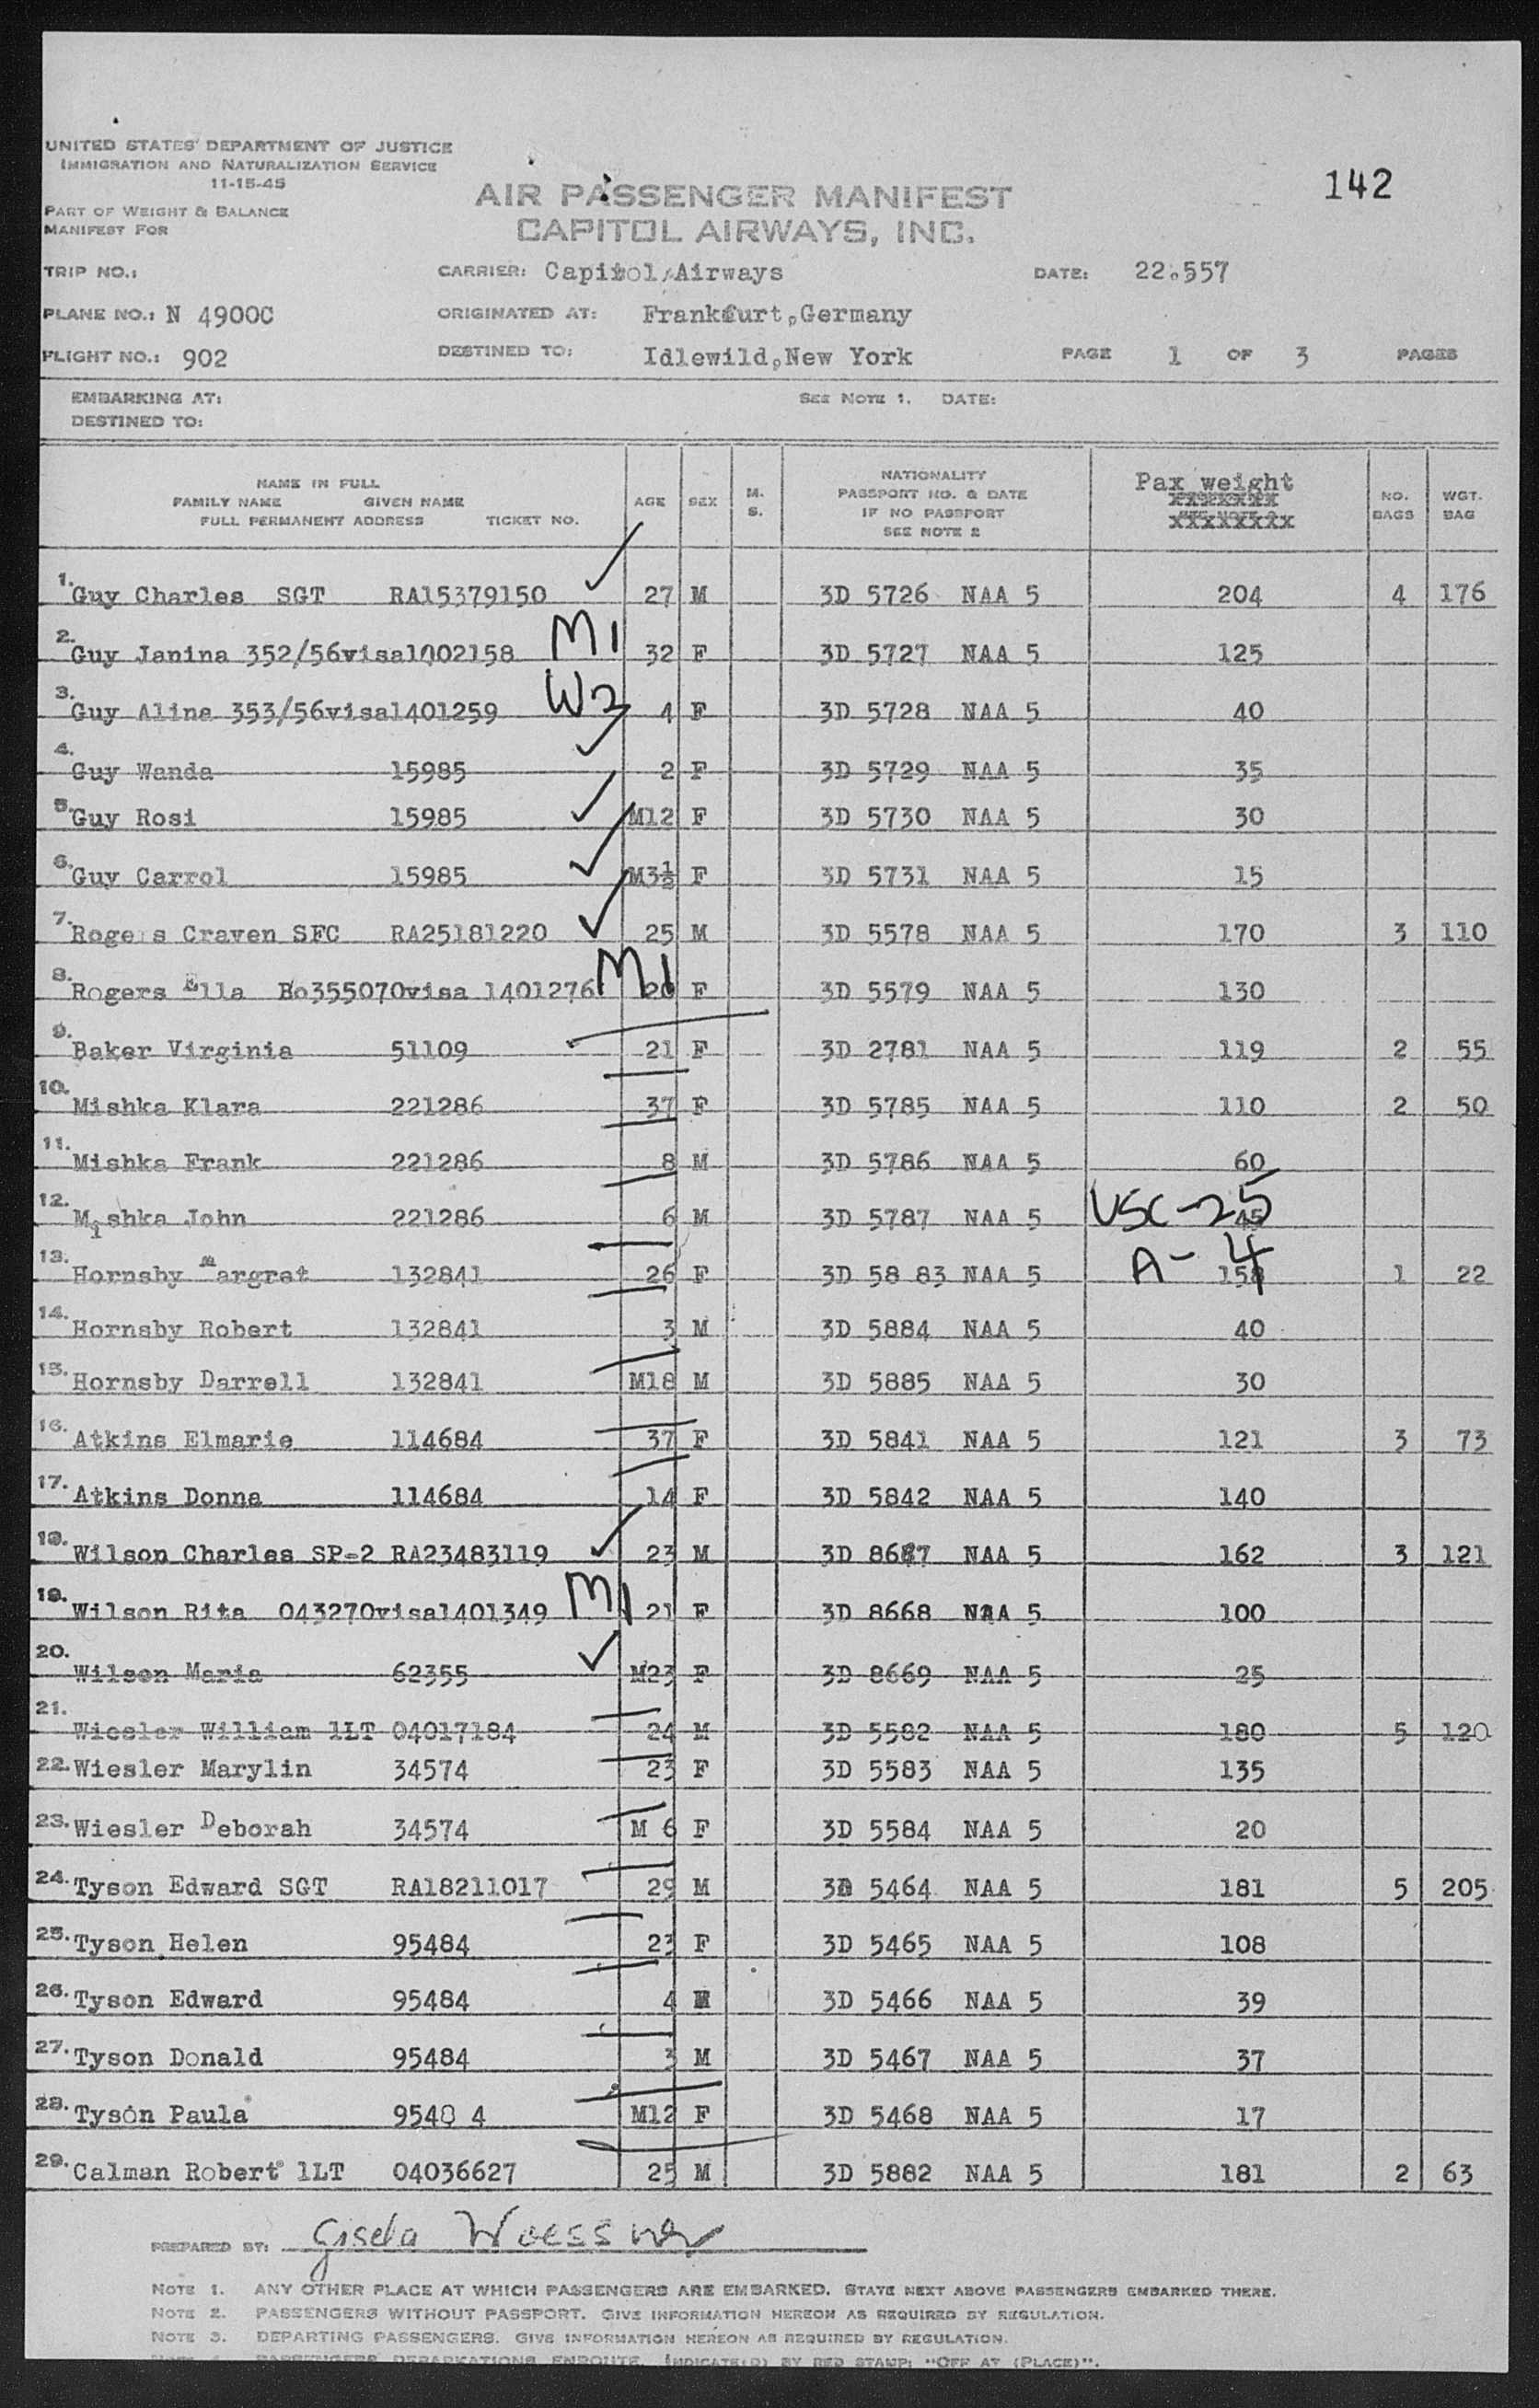 142
UNITED STATES DEPARTMENT OF JUSTICE
IMMIGRATION AND NATURALIZATION SERVICE
11-15-45
PART OF WEIGHT & BALANCE
MANIFEST FOR
AIR PASSENGER MANIFEST
CAPITOL AIRWAYS, INC.
TRIP NO.: CARRIER: Capitol Airways DATE: 22.557
PLANE NO.: N 4900C ORIGINATED AT: Frankfurt, Germany
FLIGHT NO.: 902 DESTINED TO: Idlewild, New York PAGE 1 OF 3 PAGES
EMBARKING AT: SEE NOTE 1. DATE:
DESTINED TO:
NAME IN FULL
FAMILY NAME GIVEN NAME
FULL PERMANENT ADDRESS TICKET NO.
AGE SEX M. S.
NATIONALITY
PASSPORT NO. & DATE
IF NO PASSPORT
SEE NOTE 2
Pax weight
xxxxxxx
xxxxxxxx
NO. BAGS WGT. BAG
1. Guy Charles SGT RA15379150 27 M 3D 5726 NAA 5 204 4 176
2. Guy Janina 352/56visa1002158 M1 32 F 3D 5727 NAA 5 125
3. Guy Alina 353/56visa1401259 W2 4 F 3D 5728 NAA 5 40
4. Guy Wanda 15985 2 F 3D 5729 NAA 5 35
5. Guy Rosi 15985 M12 F 3D 5730 NAA 5 30
6. Guy Carrol 15985 M3½ F 3D 5731 NAA 5 15
7. Rogers Craven SFC RA25181220 25 M 3D 5578 NAA 5 170 3 110
8. Rogers Ella Bo355070visa 1401276 M1 20 F 3D 5579 NAA 5 130
9. Baker Virginia 51109 21 F 3D 2781 NAA 5 119 2 55
10. Mishka Klara 221286 37 F 3D 5785 NAA 5 110 2 50
11. Mishka Frank 221286 8 M 3D 5786 NAA 5 60
12. Mishka John 221286 6 M 3D 5787 NAA 5 45 USC-25
13. Hornsby Margret 132841 26 F 3D 58 83 NAA 5 158 A-4 1 22
14. Hornsby Robert 132841 3 M 3D 5884 NAA 5 40
15. Hornsby Darrell 132841 M18 M 3D 5885 NAA 5 30
16. Atkins Elmarie 114684 37 F 3D 5841 NAA 5 121 3 73
17. Atkins Donna 114684 14 F 3D 5842 NAA 5 140
18. Wilson Charles SP-2 RA23483119 23 M 3D 8667 NAA 5 162 3 121
19. Wilson Rita 043270visa1401349 M1 21 F 3D 8668 NAA 5 100
20. Wilson Maria 62355 M23 F 3D 8669 NAA 5 25
21. Wiesler William 1LT 04017184 24 M 3D 5582 NAA 5 180 5 120
22. Wiesler Marylin 34574 23 F 3D 5583 NAA 5 135
23. Wiesler Deborah 34574 M 6 F 3D 5584 NAA 5 20
24. Tyson Edward SGT RA18211017 29 M 3D 5464 NAA 5 181 5 205
25. Tyson Helen 95484 23 F 3D 5465 NAA 5 108
26. Tyson Edward 95484 4 M 3D 5466 NAA 5 39
27. Tyson Donald 95484 3 M 3D 5467 NAA 5 37
28. Tyson Paula 9548 4 M12 F 3D 5468 NAA 5 17
29. Calman Robert 1LT 04036627 25 M 3D 5882 NAA 5 181 2 63
PREPARED BY: Gisela Woessner
NOTE 1. ANY OTHER PLACE AT WHICH PASSENGERS ARE EMBARKED. STATE NEXT ABOVE PASSENGERS EMBARKED THERE.
NOTE 2. PASSENGERS WITHOUT PASSPORT. GIVE INFORMATION HEREON AS REQUIRED BY REGULATION.
NOTE 3. DEPARTING PASSENGERS. GIVE INFORMATION HEREON AS REQUIRED BY REGULATION.
NOTE 4. PASSENGERS DEBARKATIONS ENROUTE. INDICATE(D) BY RED STAMP: "OFF AT (PLACE)".